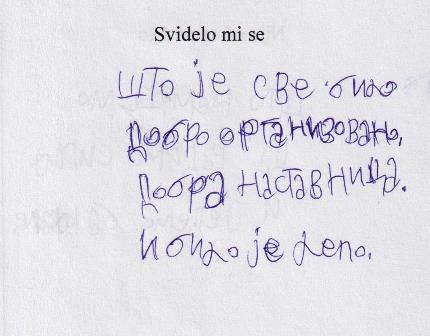 Svidelo mi se
што је све било
добро организовано,
добра наставница.
и било је лепо.